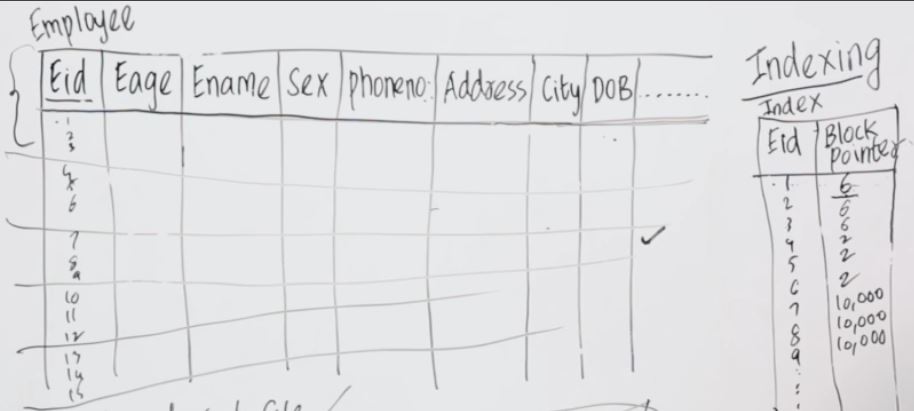 Employee
Eid Eage Ename Sex phoneno: Address City DOB ........
1
2
3
4
5
6
7
8
9
10
11
12
13
14
15
Indexing
Index
Eid Block pointer
1 6
2 6
3 6
4 2
5 2
6 2
7 10,000
8 10,000
9 10,000
:
: